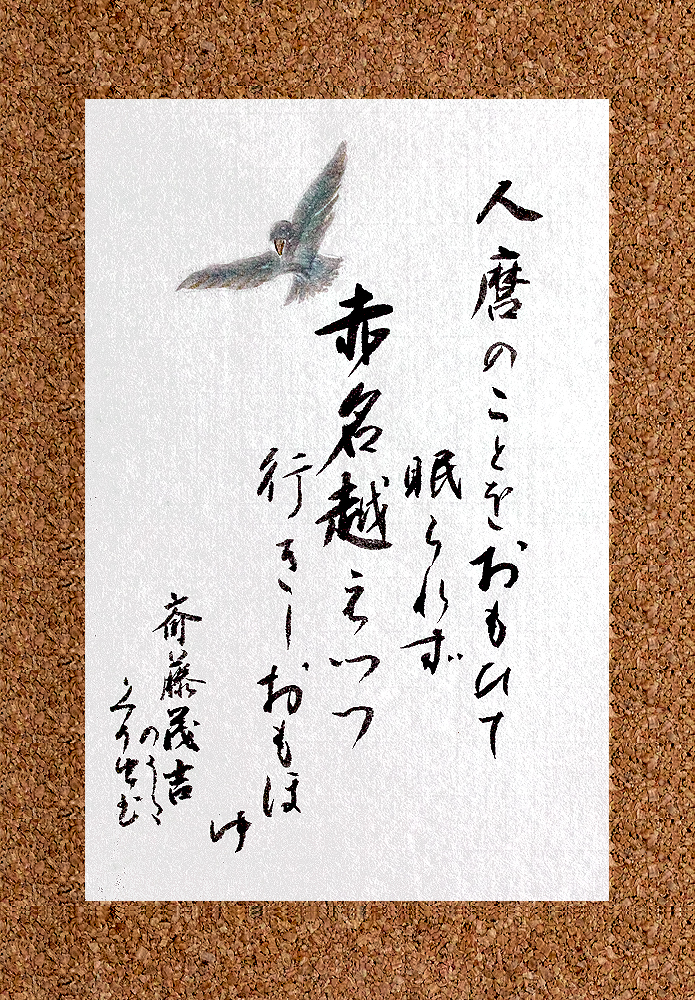 人麿のことをおもひて
眠られず
赤名越えつつ
行きしおもほ
ゆ
斎藤茂吉
のうた